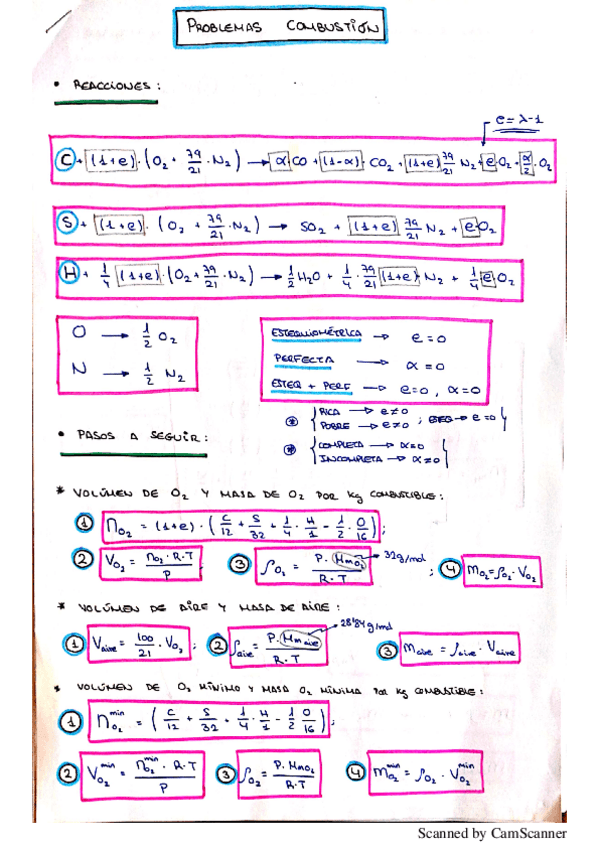 PROBLEMAS COMBUSTIÓN
• REACCIONES:
e = λ-1
C + (1+e)·(O₂ + 79/21·N₂) → αCO + (1-α)·CO₂ + (1+e) 79/21 N₂ + e O₂ + α/2·O₂
S + (1+e)·(O₂ + 79/21·N₂) → SO₂ + (1+e) 79/21 N₂ + e O₂
H + 1/4 (1+e)·(O₂ + 79/21·N₂) → 1/2 H₂O + 1/4·79/21 (1+e) N₂ + 1/4 e O₂
O → 1/2 O₂
N → 1/2 N₂
ESTEQUIOMÉTRICA → e=0
PERFECTA → α=0
ESTEQ + PERF → e=0, α=0
* { RICA → e≠0
POBRE → e≠0 ; ESTEQ → e=0 }
* { COMPLETA → α=0
INCOMPLETA → α≠0 }
• PASOS A SEGUIR:
* VOLÚMEN DE O₂ Y MASA DE O₂ POR Kg COMBUSTIBLE:
1 nO₂ = (1+e)·(C/12 + S/32 + 1/4·H/1 - 1/2·O/16);
2 VO₂ = nO₂·R·T/P ; 3 ρO₂ = P·MmO₂/R·T → 32g/mol ; 4 mO₂ = ρO₂·VO₂
* VOLÚMEN DE AIRE Y MASA DE AIRE:
1 Vaire = 100/21·VO₂ ; 2 ρaire = P·Mmaire/R·T → 28'84 g/mol 3 maire = ρaire·Vaire
* VOLÚMEN DE O₂ MÍNIMO Y MASA O₂ MÍNIMA POR Kg COMBUSTIBLE:
1 nO₂ᵐⁱⁿ = (C/12 + S/32 + 1/4·H/1 - 1/2 O/16);
2 VO₂ᵐⁱⁿ = nO₂ᵐⁱⁿ·R·T/P 3 ρO₂ = P·MmO₂/R·T 4 mO₂ᵐⁱⁿ = ρO₂·VO₂ᵐⁱⁿ
Scanned by CamScanner